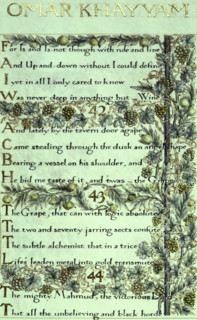 OMAR KHAYYAM
For Is and Is-not though with rule and line
And Up-and-down without I could define
I yet in all I only cared to know
Was never deep in anything but—Wine
42
And lately by the tavern door agape
Came stealing through the dusk an angel shape
Bearing a vessel on his shoulder, and
He bid me taste of it, and 'twas—the
43
The Grape, that can with logic absolute
The two and seventy jarring sects confute
The subtle alchemist that in a trice
Life's leaden metal into gold transmute
44
The mighty Mahmud, the victorious
That all the unbelieving and black horde